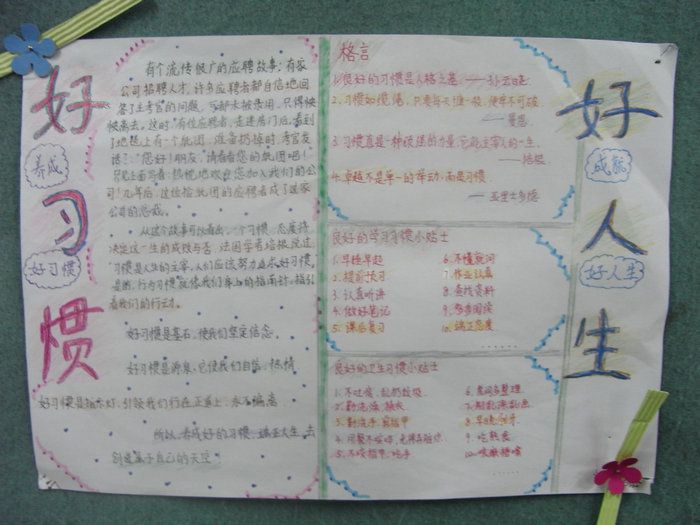 好习惯
养成
好习惯
有个流传很广的应聘故事：有家
公司招聘人才，许多应聘者都自信地回
答了主考官的问题，可都未被录用，只得怏
怏离去。这时，有位应聘者，走进房门后，看到
了地毯上有个纸团
准备扔掉时，考官发
话了：“您好！朋友，请看看您的纸团吧！
热忱地欢迎您加入我们的公
司！”几年后，这位捡纸团的应聘者成了这家
公司的总裁。
从这个故事可以看出，一个习惯
决定这一生的成败与否，法国学者培根说过，
习惯是人生的主宰，人们应该努力追求好习惯。
是的，行为习惯就像我们身上的指南针，指引
着我们的行动。
好习惯是基石，使我们坚定信念。
好习惯是源泉，它使我们自信、热情
好习惯是指示灯，引领我们行在正道上，永不偏离
所以，养成好的习惯，端正人生，去
创造属于自己的天空！
格言
1.良好的习惯是人格之基。——孙云晓
2.习惯如缆绳，只要每天缠一股，便牢不可破
——曼恩
3.习惯真是一种顽强的力量，它能主宰人的一生。
——培根
4.卓越不是单一的举动，而是习惯
——亚里士多德
良好的学习习惯小贴士
1.早睡早起
2.提前预习
3.认真听讲
4.做好笔记
5.课后复习
6.不懂就问
7.作业认真
8.查找资料
9.多多阅读
10.端正态度
......
良好的卫生习惯小贴士
1.不吐痰，乱扔垃圾
2.勤洗澡，换衣
3.勤洗手，剪指甲
5.不咬指甲、吃手
8.早晚刷牙
......
好人生
成就
好人生